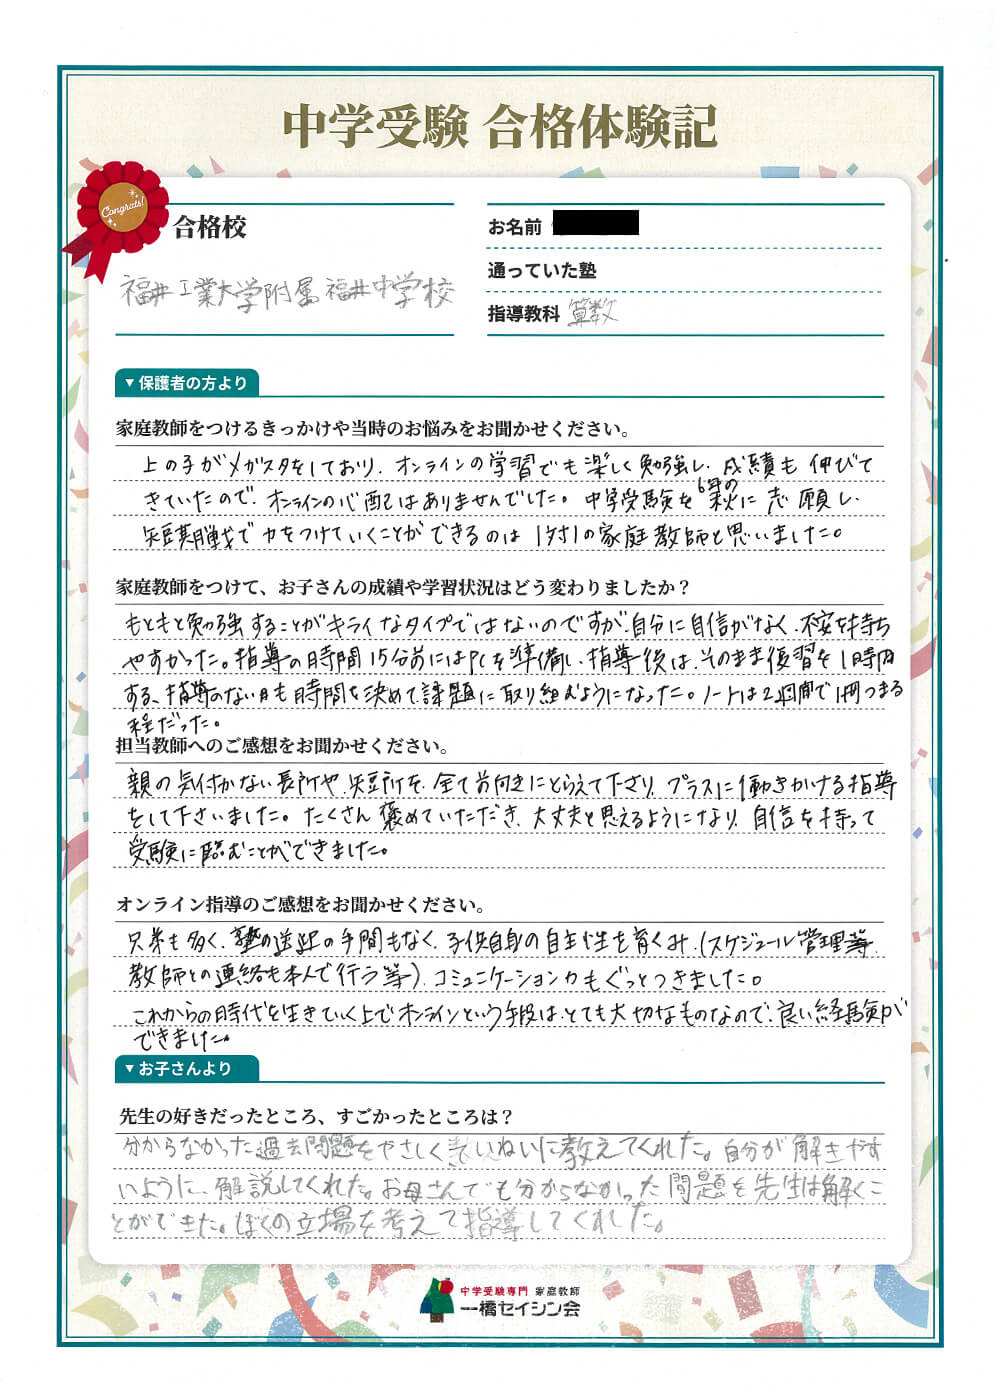 中学受験 合格体験記
Congrats!
合格校
福井工業大学附属福井中学校
お名前
通っていた塾
指導教科 算数
▼保護者の方より
家庭教師をつけるきっかけや当時のお悩みをお聞かせください。
上の子がメガスタをしており、オンラインの学習でも楽しく勉強し、成績も伸びて
きていたので、オンラインの心配はありませんでした。中学受験を6年の秋に志願し、
短期戦で力をつけていくことができるのは1対1の家庭教師と思いました。
家庭教師をつけて、お子さんの成績や学習状況はどう変わりましたか？
もともと勉強することがキライなタイプではないのですが、自分に自信がなく、不安を持ち
やすかった。指導の時間15分前にはPCを準備し、指導後は、そのまま復習を1時間
する、指導のない日も時間を決めて課題に取り組むようになった。ノートは2週間で1冊つまる
程だった。
担当教師へのご感想をお聞かせください。
親の気付かない長所や、短所を、全て前向きにとらえて下さり、プラスに働きかける指導
をして下さいました。たくさん褒めていただき、大丈夫と思えるようになり、自信を持って
受験に臨むことができました。
オンライン指導のご感想をお聞かせください。
兄弟も多く、塾の送迎の手間もなく、子供自身の自主性を育くみ、(スケジュール管理等、
教師との連絡も本人で行う等)、コミュニケーション力もぐっとつきました。
これからの時代を生きていく上でオンラインという手段は、とても大切なものなので、良い経験が
できました。
▼お子さんより
先生の好きだったところ、すごかったところは？
分からなかった過去問題をやさしくていねいに教えてくれた。自分が解きやす
いように、解説してくれた。お母さんでも分からなかった問題を先生は解くこ
とができた。ぼくの立場を考えて指導してくれた。
中学受験専門 家庭教師
一橋セイシン会